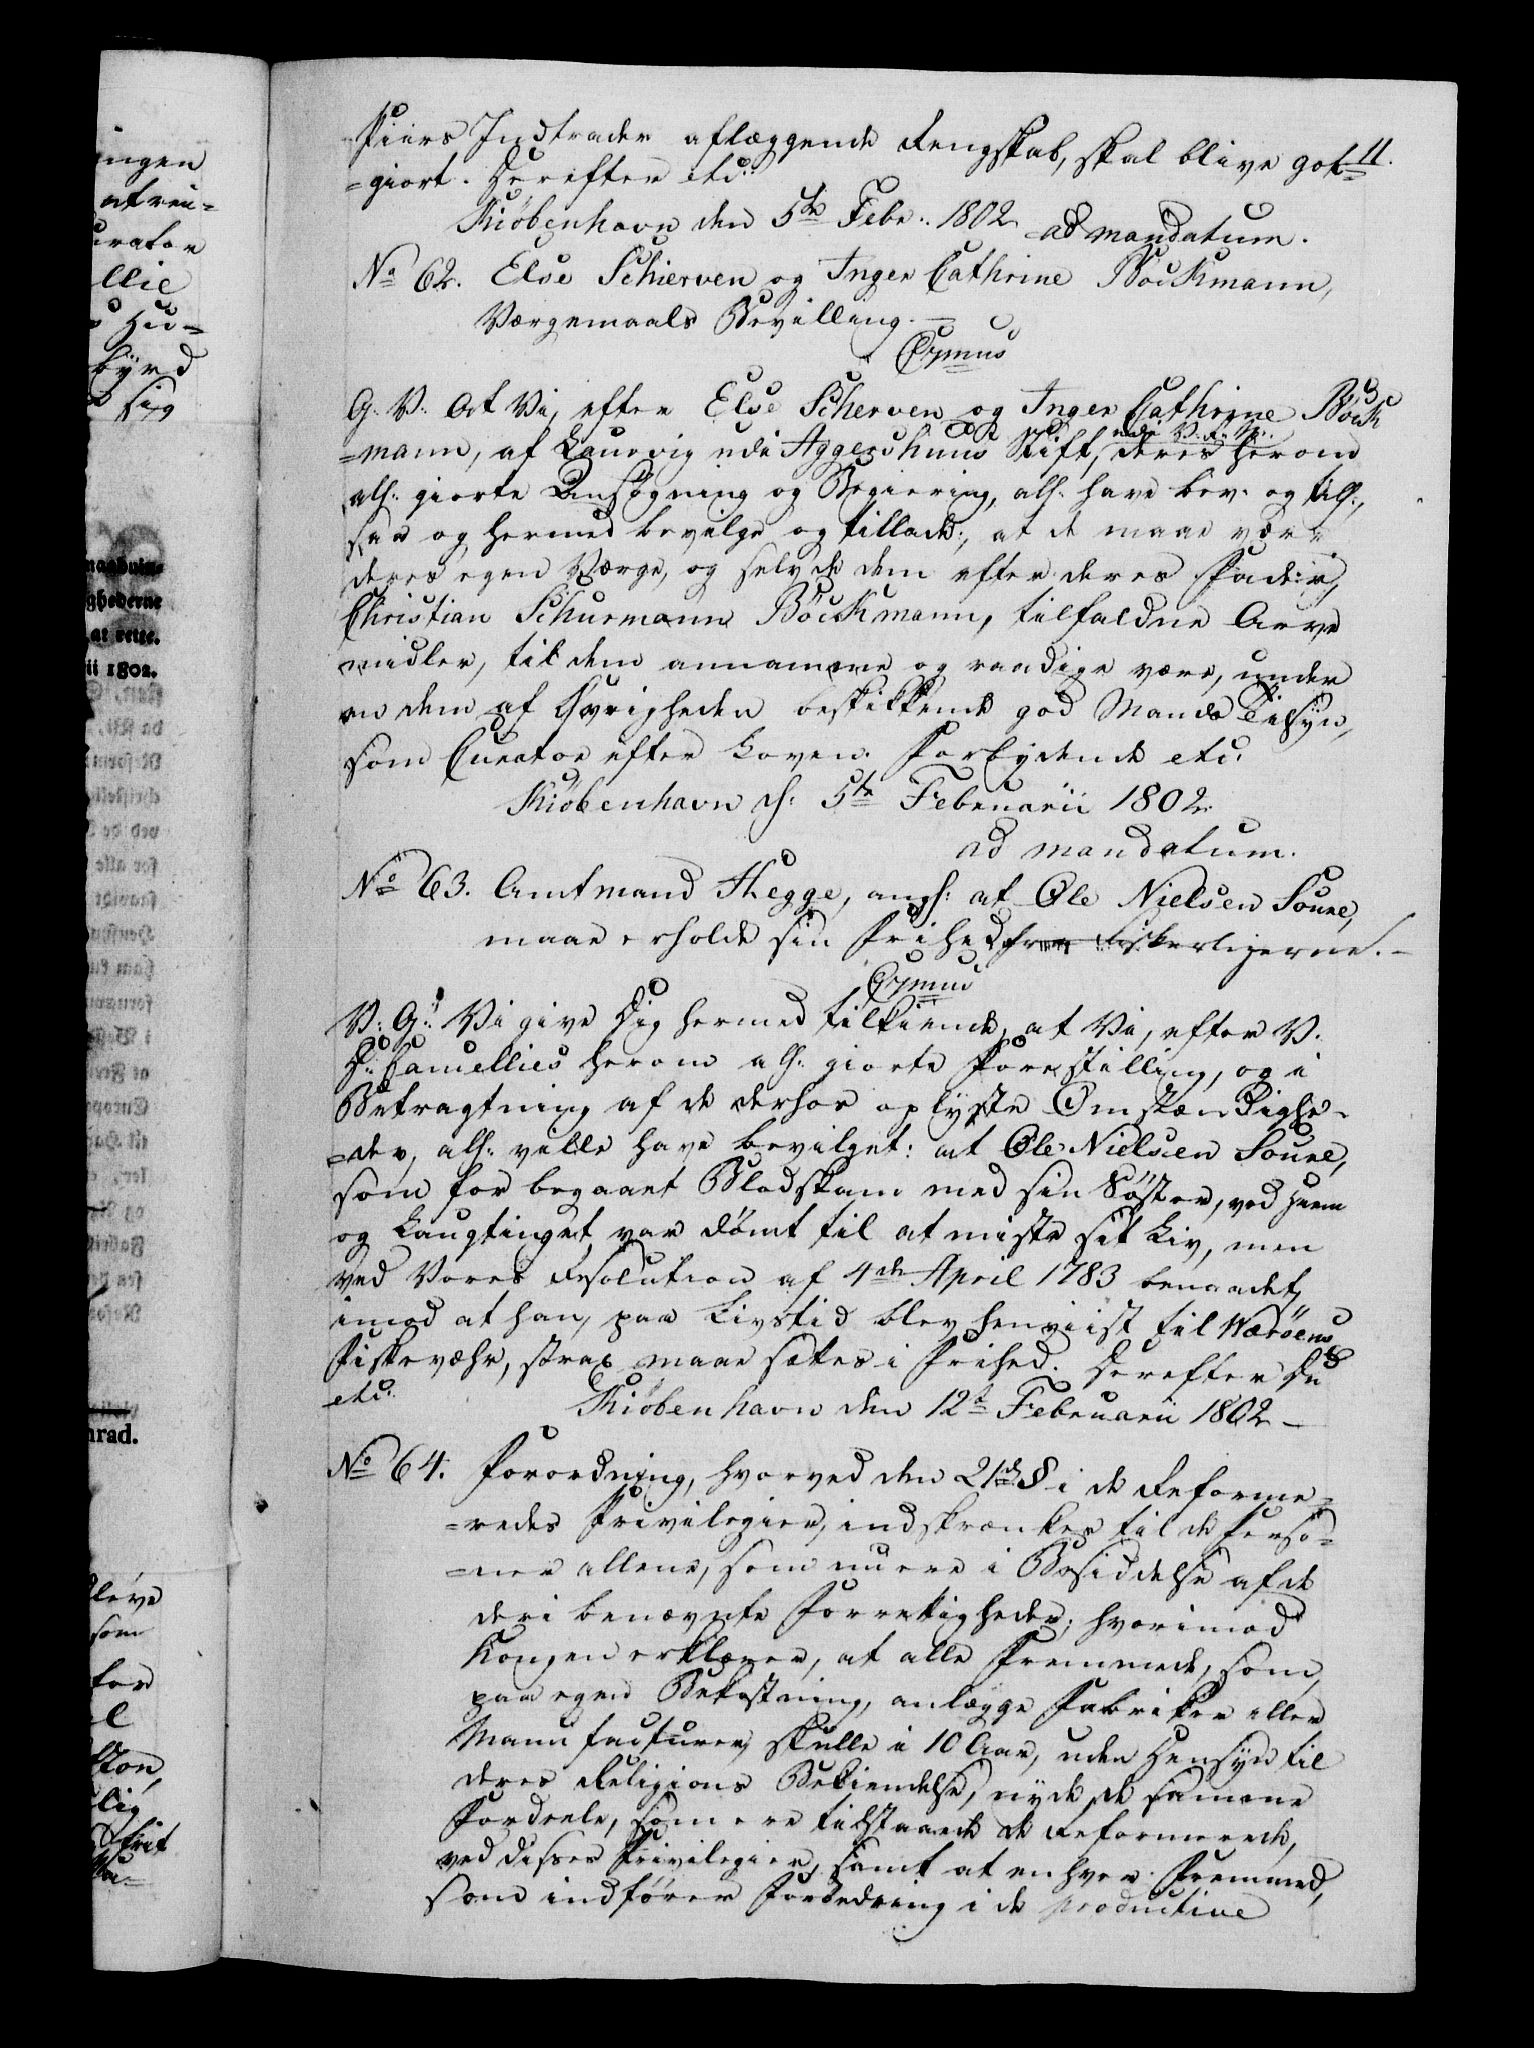 ingen
at vei=
urator
llie
Hu=
byrd
sig
ghederne
at rette.
ii 1802.
nrad.
som
for
Piers Indtrader aflæggende Regnskab, skal blive got= 11.
=giort. Derefter etc.
Kiöbenhavn den 5te Febr. 1802 ad mandatum.
No 62. Else Schierven og Inger Cathrine Böckmann,
Værgemaals Bevilling. —
Crymus
G. V. At Vi, efter Else Scherven og Inger Cathrine Böck
=mann, af Laurvig udi Aggershuus Stift, udi V. R. N. deres herom
alh. giorte Ansøgning og Begiering, alh. have bev. og till.,
saa og hermed bevilge og tillade, at de maae være
deres egen Værge, og selv de dem efter deres Fader,
Christian Schurmann Böckmann, tilfaldne Arve
midler, til dem annamme og raadige være, under
en dem af Øvrigheden beskikkende god Mands Tilsyn,
som Curator efter Loven. Forbydende etc.
Kiöbenhavn d. 5te Februarii 1802.
ad mandatum.
No 63. Amtmand Hegge, angl. at Ole Nielsen Soure,
maae erholde sin Frihed fra Fiskerlejerne. —
Crymus
V. G. Vi give Dig hermed tilkiende, at Vi, efter V.
D. Cancellies herom alh. giorte Forestilling, og i
Betragtning af de derhos oplyste Omstændighe=
=der, alh. ville have bevilget: at Ole Nielsen Soure,
som for begaaet Blodskam med sin Söster, ved Hiem
og Laugtinget, var dömt til at miste sit Liv, men
ved Vores Resolution af 4de April 1783 benaadet,
imod at han, paa Livstid blev henviist til Wæröens
Fiskevæhr, strax maae sættes i Frihed. Derefter Du
etc. Kiöbenhavn den 12te Februarii 1802 —
No 64. Forordning, hvorved den 21de § i de Reforme=
=redes Privilegier, indskrænkes til de Perso=
=ner allene, som nu ere i Besiddelse af de
deri benævnte Forrettigheder; hvorimod
Kongen erklærer, at alle Fremmede, som,
paa egen Bekostning, anlægge Fabrikker eller
Manufacturer, skulle i 10 Aar, uden Hensyn til
deres Religions Bekiendelse, nyde de samme
Fordeele, som ere tilstaaede de Reformerede,
ved disses Privilegier, samt at enhver Fremmed,
som indfører Forbedring i de productive